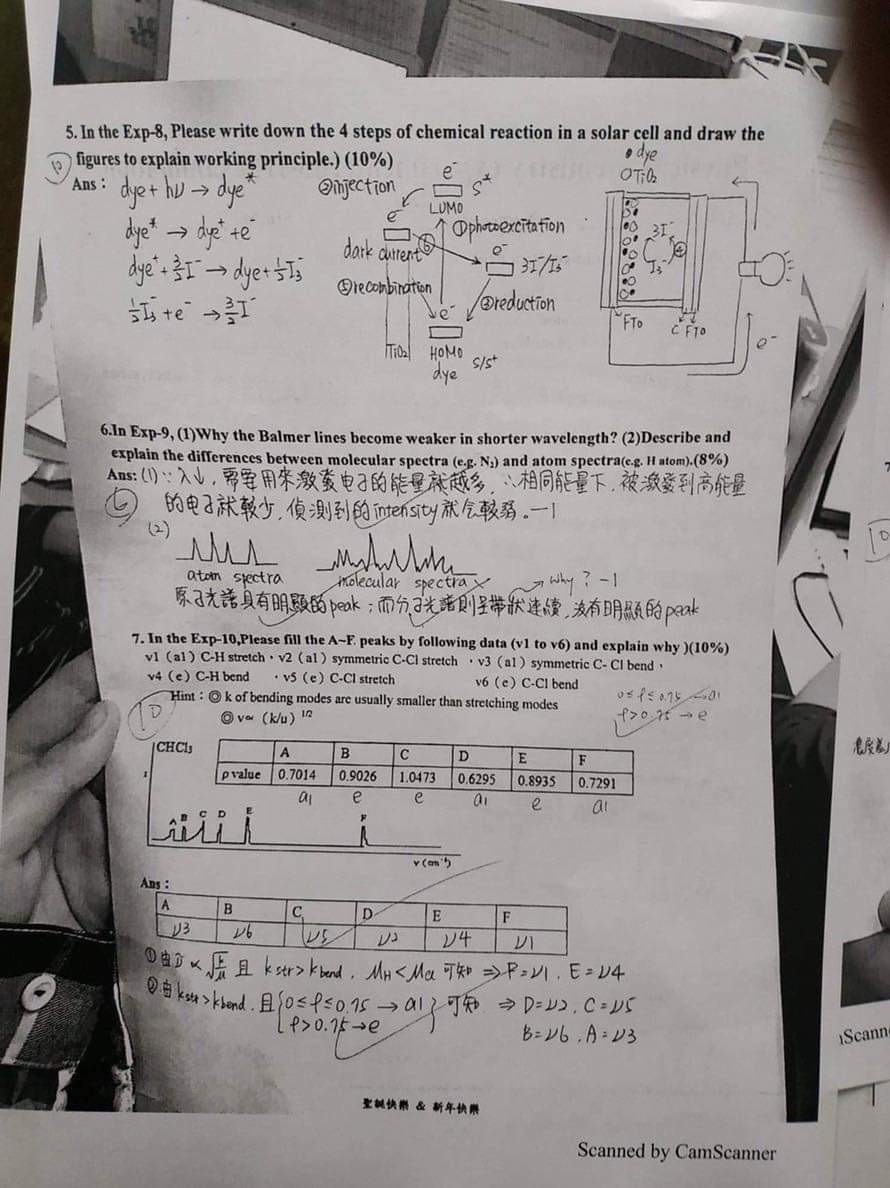 5. In the Exp-8, Please write down the 4 steps of chemical reaction in a solar cell and draw the
figures to explain working principle.) (10%)
10
Ans:
dye + hν → dye*
dye* → dye⁺ + e⁻
dye⁺ + 3/2 I⁻ → dye + 1/2 I₃⁻
1/2 I₃⁻ + e⁻ → 3/2 I⁻
②injection
e⁻
S*
LUMO
e⁻
①photoexcitation
dark current
⑥
e⁻
3I⁻/I₃⁻
⑤recombination
e⁻
③reduction
TiO₂
HOMO
S/S⁺
dye
• dye
O TiO₂
3I⁻
I₃⁻
④
FTO
C FTO
e⁻
6.In Exp-9, (1)Why the Balmer lines become weaker in shorter wavelength? (2)Describe and
explain the differences between molecular spectra (e.g. N₂) and atom spectra(e.g. H atom).(8%)
Ans: (1) ∵ λ↓, 需要用來激發電子的能量就越多, ∴相同能量下, 被激發到高能量
6
的電子就較少, 偵測到的intensity就會較弱。 -1
(2)
atom spectra
molecular spectra
why? -1
原子光譜具有明顯的peak; 而分子光譜則呈帶狀連續, 沒有明顯的peak
7. In the Exp-10,Please fill the A~F peaks by following data (v1 to v6) and explain why )(10%)
v1 (a1) C-H stretch, v2 (a1) symmetric C-Cl stretch , v3 (a1) symmetric C- Cl bend,
v4 (e) C-H bend , v5 (e) C-Cl stretch v6 (e) C-Cl bend
Hint : ◎ k of bending modes are usually smaller than stretching modes
10
◎ v∝ (k/u) 1/2
0≤ρ≤0.75 → a1
ρ>0.75 → e
CHCl₃
I
A B C D E F
ρ value 0.7014 0.9026 1.0473 0.6295 0.8935 0.7291
a1 e e a1 e a1
A B C D E F
v (cm⁻¹)
Ans :
A B C D E F
ν3 ν6 ν5 ν2 ν4 ν1
① 由 ν̄ ∝ √k/μ 且 kstr > kbend, MH < MCl 可知 ⇒ F=ν1, E=ν4
② 由 kstr > kbend, 且 {0≤ρ≤0.75 → a1 } 可知 ⇒ D=ν2, C=ν5
ρ>0.75 → e
B=ν6, A=ν3
聖誕快樂 & 新年快樂
Scanned by CamScanner
10
Scann